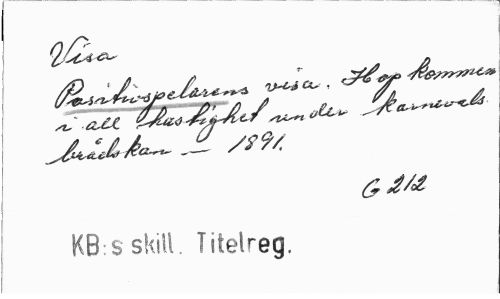 Visa
Positivspelarens visa. Hop kommen
i all hastighet under karnevals
brådskan — 1891.
G 212
KB:s skill. Titelreg.